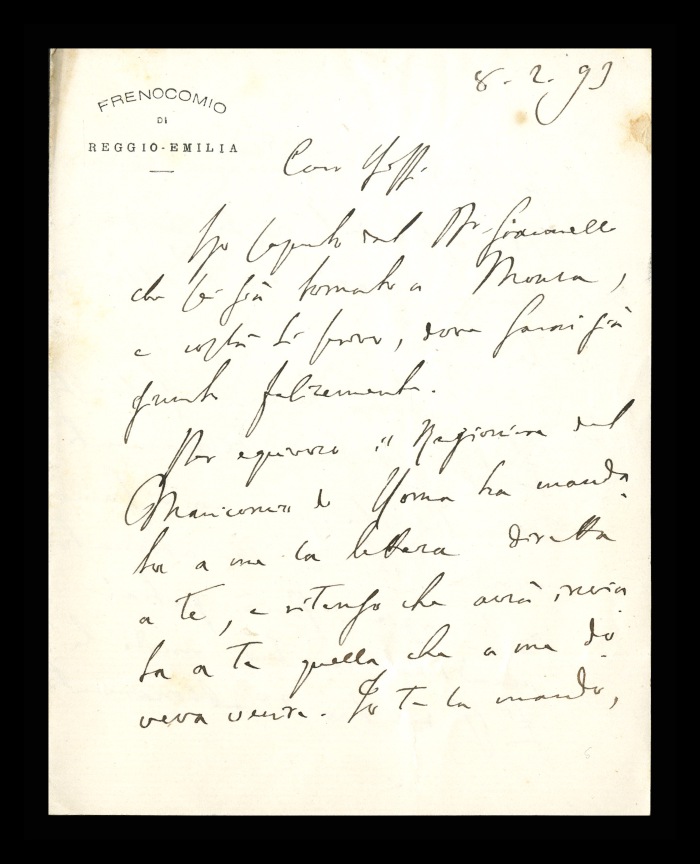 FRENOCOMIO
DI
REGGIO-EMILIA
8. 2. 93
Caro
Ho saputo dal Dr Giacanelli
che sei già tornato a Monza,
e costà ti scrivo, dove sarai già
giunto felicemente.
Per equivoco il Ragioniere del
Manicomio di Roma ha manda
to a me la lettera diretta
a te, e ritengo che avrà invia
to a te quella che a me do
veva venire. Io te la mando,